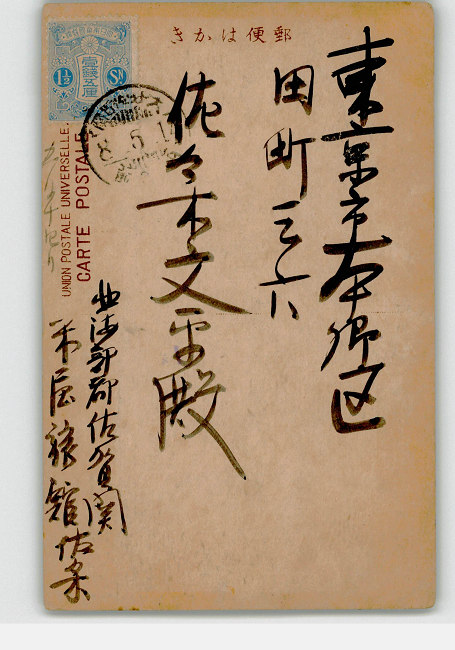 きかは便郵
東京市本郷区
田町三六
佐々木文平殿
北海部郡佐賀関
米屋旅館佐糸
UNION POSTALE UNIVERSELLE.
CARTE POSTALE
壹錢五厘
1½
SN